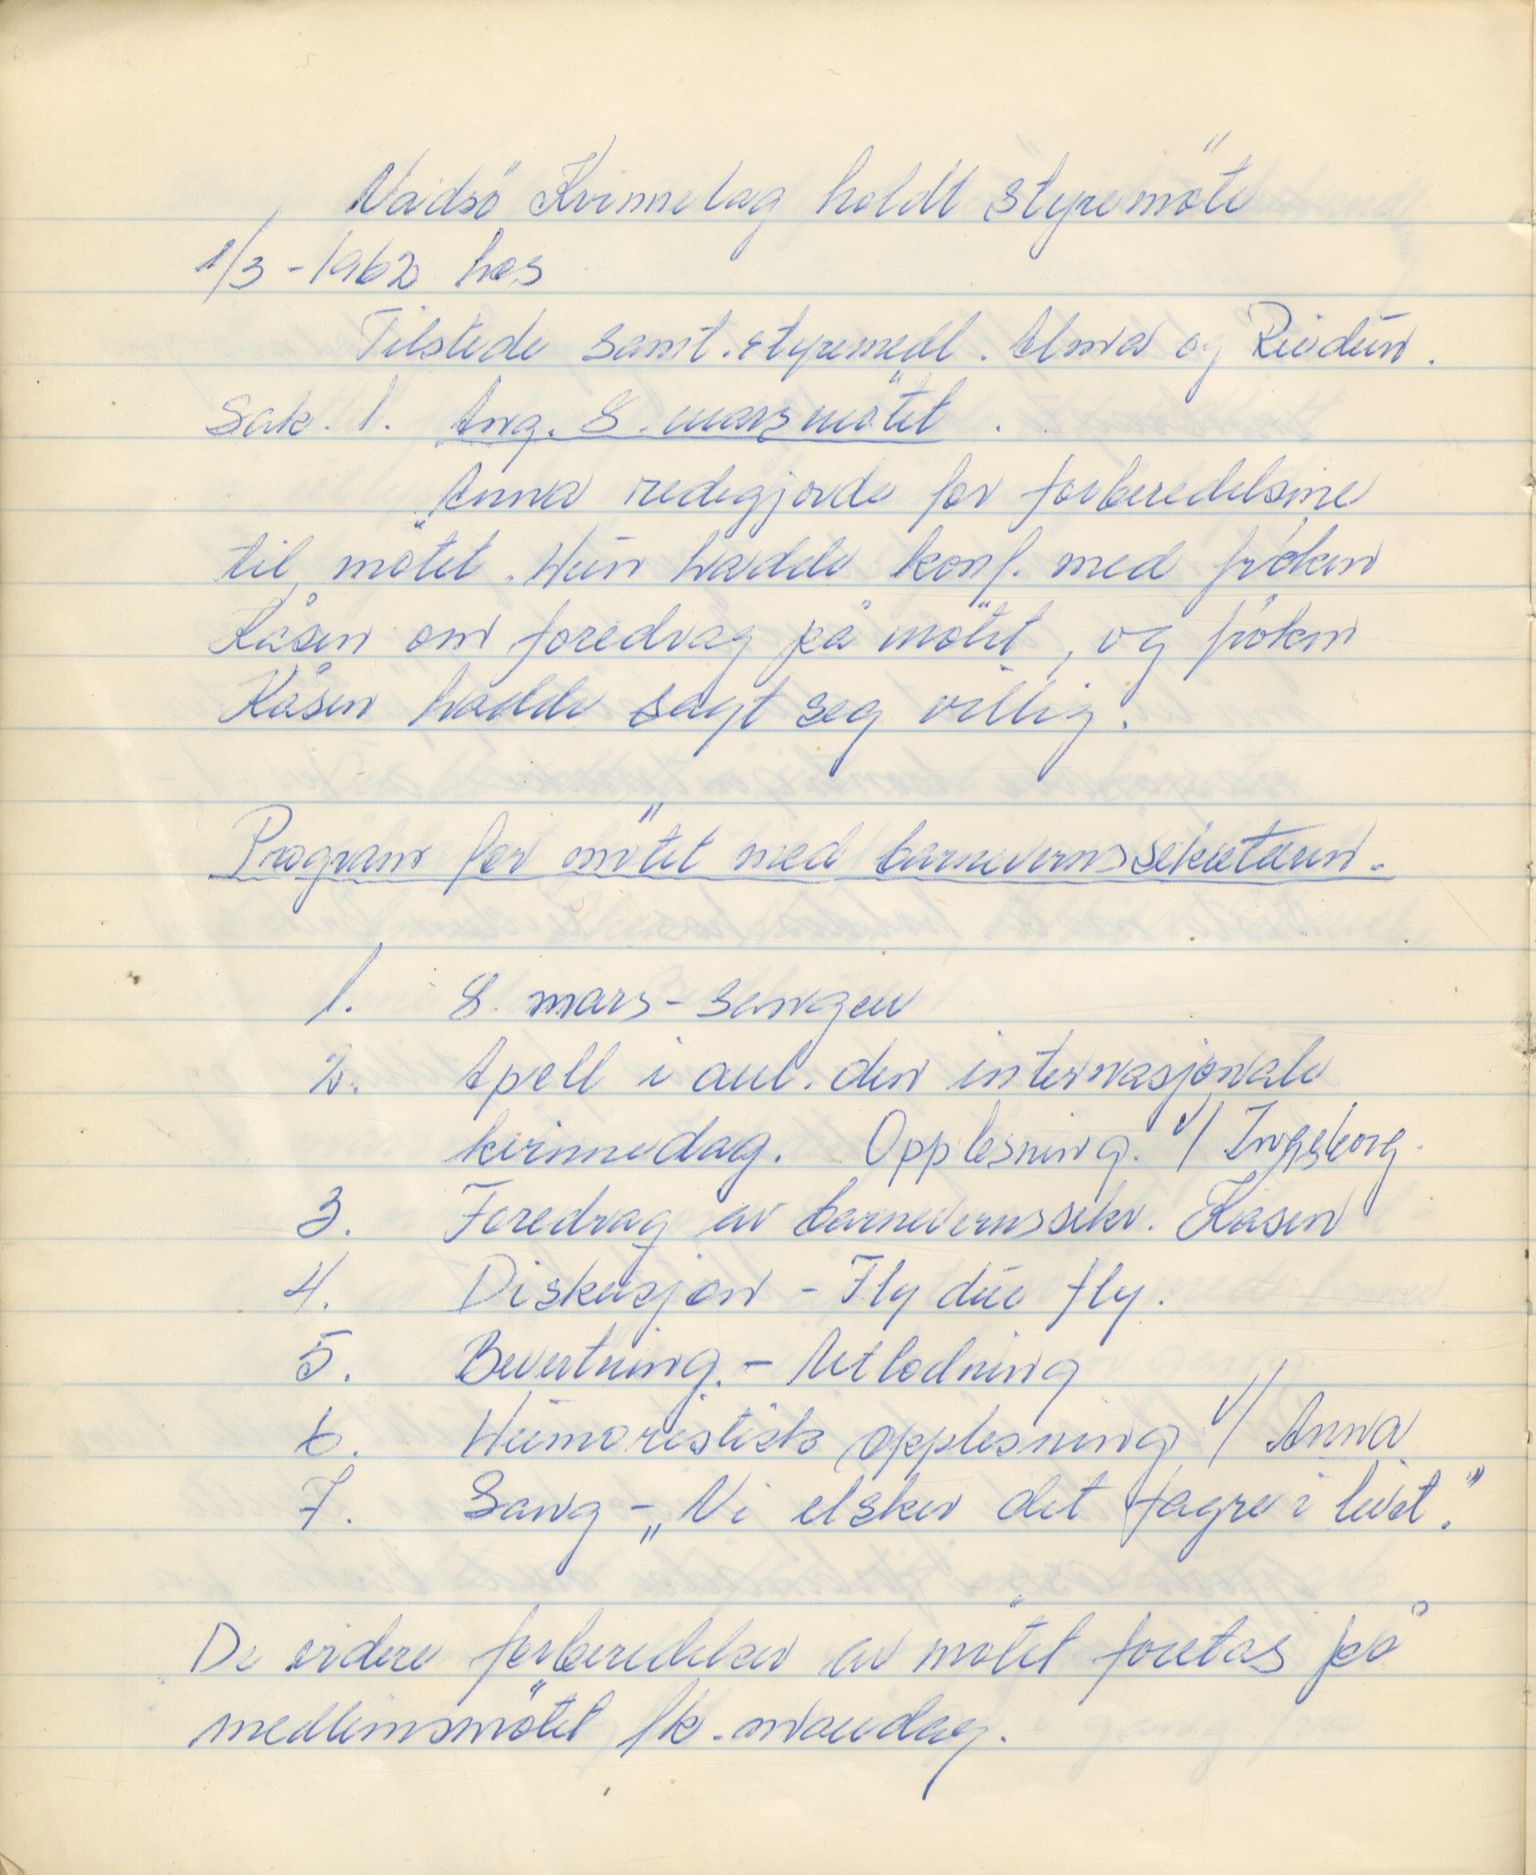 Vadsö Kvinnelag holdt styremöte
1/3 - 1962 hos
Tilstede samt. styremedl. Alma og Reidun.
Sak. 1. Ang. 8. mars mötet.
Anna redegjorde for forberedelsene
til mötet. Hun hadde konf. med fröken
Kåsen om foredrag på mötet, og fröken
Kåsen hadde sagt seg villig.
Program for mötet med barnevernssekretæren.
1. 8. mars - sangen
2. Apell i anl. den internasjonale
kvinnedag. Opplesning. v/ Ingeborg.
3. Foredrag av barnevernssekr. Kåsen
4. Diskusjon - Fly due fly.
5. Bevertning. - Utlodning
6. Humoristisk opplesning v/ Anna
7. Sang - „Vi elsker det fagre i livet."
De videre forberedelser av mötet foretas på
medlemsmötet fk. mandag.